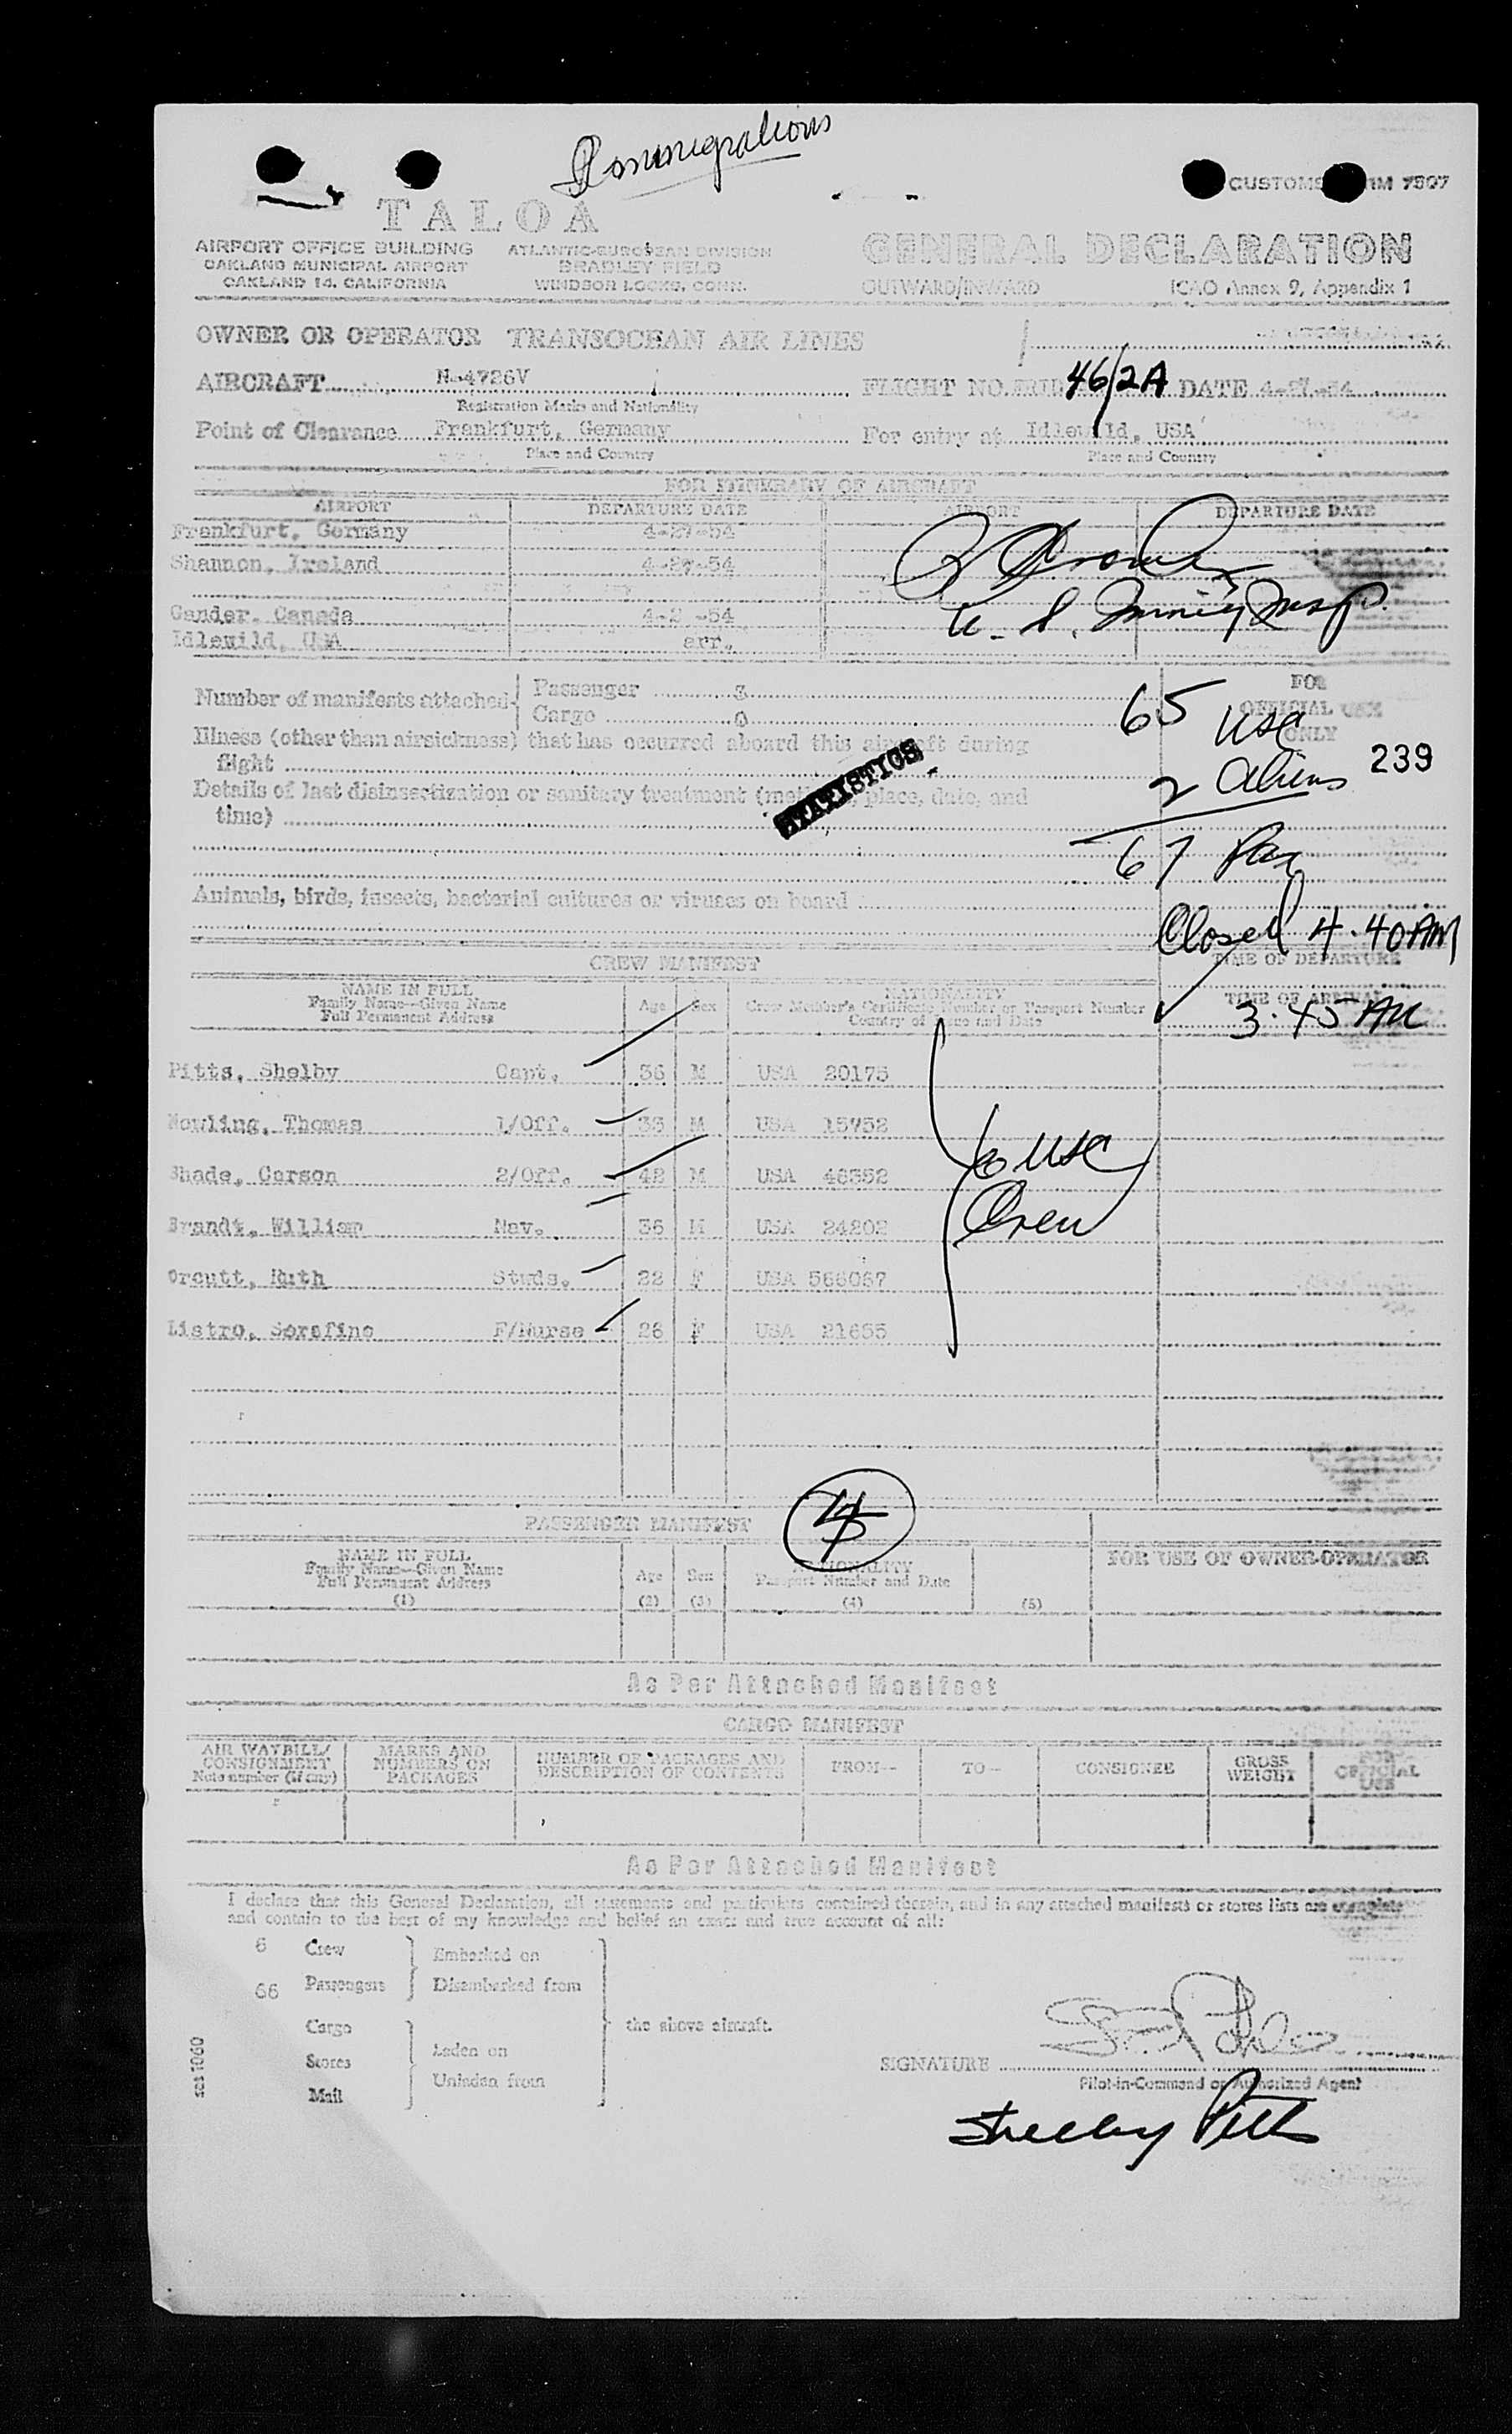 Immigrations
CUSTOMS FORM 7507
TALOA
AIRPORT OFFICE BUILDING
OAKLAND MUNICIPAL AIRPORT
OAKLAND 14, CALIFORNIA
ATLANTIC-EUROPEAN DIVISION
BRADLEY FIELD
WINDSOR LOCKS, CONN.
GENERAL DECLARATION
OUTWARD/INWARD ICAO Annex 9, Appendix 1
OWNER OR OPERATOR TRANSOCEAN AIR LINES
AIRCRAFT N-4726V FLIGHT NO. 46/2A DATE 4-27-54
Registration Marks and Nationality
Point of Clearance Frankfurt, Germany For entry at Idlewild, USA
Place and Country Place and Country
FOR ITINERARY OF AIRCRAFT
AIRPORT DEPARTURE DATE AIRPORT DEPARTURE DATE
Frankfurt, Germany 4-27-54
Shannon, Ireland 4-27-54
Gander, Canada 4-2 -54
Idlewild, USA arr.
U. S. Immig Insp.
Number of manifests attached Passenger 3
Cargo 0
FOR OFFICIAL USE ONLY
65 USC
2 Aliens
239
67 Pax
Illness (other than airsickness) that has occurred aboard this aircraft during
flight
Details of last disinsectization or sanitary treatment (method, place, date, and
time)
STATISTICS
Animals, birds, insects, bacterial cultures or viruses on board
Closed 4.40 AM
TIME OF DEPARTURE
TIME OF ARRIVAL
3.45 AM
CREW MANIFEST
NAME IN FULL
Family Name—Given Name
Full Permanent Address
Age Sex
NATIONALITY
Crew Member's Certificate Number or Passport Number
Country of Issue and Date
Pitts, Shelby Capt. 36 M USA 20175
Nowling, Thomas 1/Off. 33 M USA 15752
Shade, Carson 2/Off. 42 M USA 48352
Brandt, William Nav. 36 M USA 24202
Orcutt, Ruth Stwds. 22 F USA 566067
Listro, Serafino F/Nurse 26 F USA 21655
6 USC
Crew
PASSENGER MANIFEST
NAME IN FULL
Family Name—Given Name
Full Permanent Address
(1)
Age
(2)
Sex
(3)
NATIONALITY
Passport Number and Date
(4)
(5)
FOR USE OF OWNER-OPERATOR
As Per Attached Manifest
CARGO MANIFEST
AIR WAYBILL/
CONSIGNMENT
Note number (if any)
MARKS AND
NUMBERS ON
PACKAGES
NUMBER OF PACKAGES AND
DESCRIPTION OF CONTENTS
FROM—
TO—
CONSIGNEE
GROSS
WEIGHT
FOR
OFFICIAL
USE
As Per Attached Manifest
I declare that this General Declaration, all statements and particulars contained therein, and in any attached manifests or stores lists are complete
and contain to the best of my knowledge and belief an exact and true account of all:
6 Crew
66 Passengers
Embarked on
Disembarked from
Cargo
Stores
Mail
Laden on
Unladen from
the above aircraft.
SIGNATURE
Pilot-in-Command or Authorized Agent
Shelby Pitts